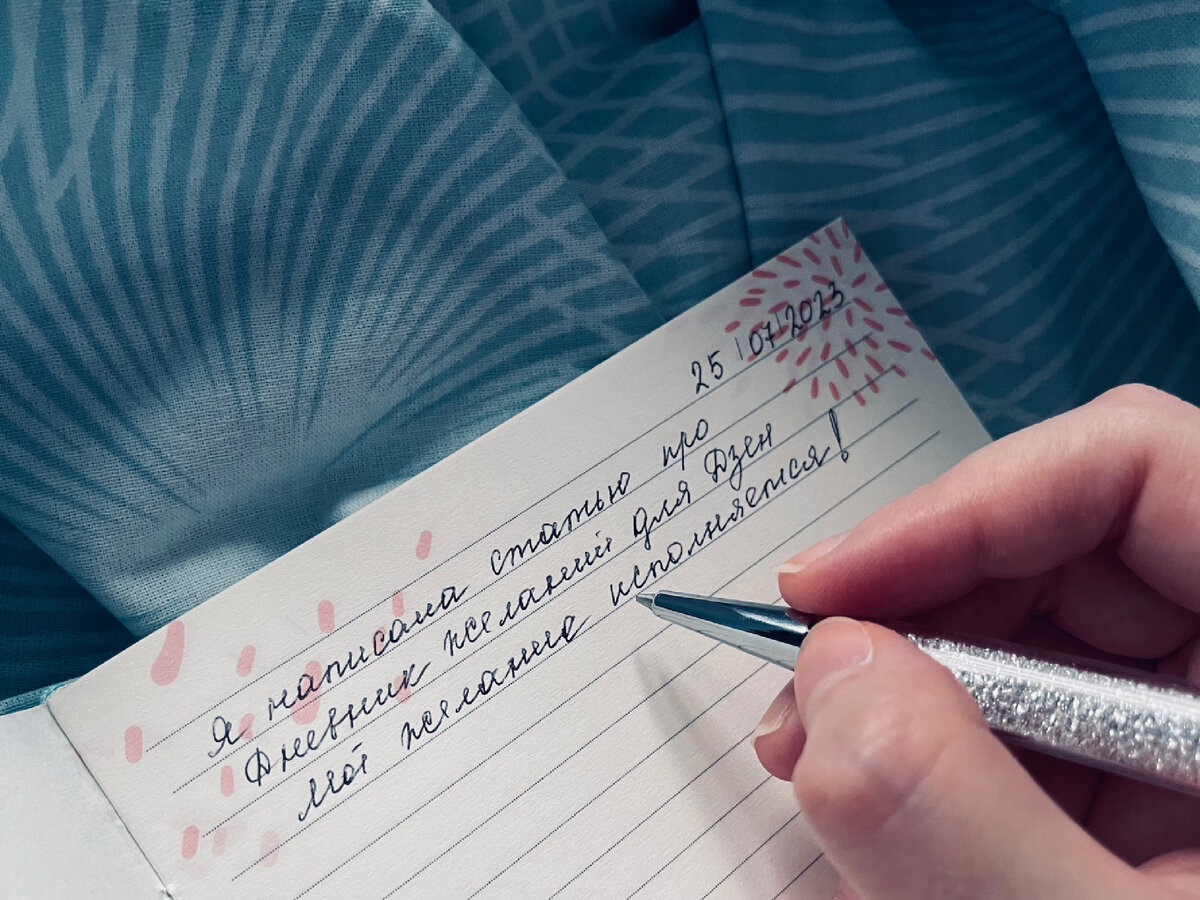 25/07/2023
Я написала статью про
Дневник желаний для Дзен
Моё желание исполняется!